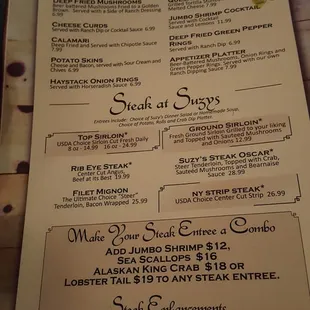 DEEP FRIED MUSHROOMS
Beer battered Mushrooms Fried to a Golden
Brown. Served with a Side of Ranch Dressing
6.99
CHEESE CURDS
Served with Ranch Dip or Cocktail Sauce 6.99
CALAMARI
Deep Fried and Served with Chipotle Sauce
7.99
POTATO SKINS
Cheese and Bacon, Served with Sour Cream and
Chives 6.99
HAYSTACK ONION RINGS
Served with Horseradish Sauce 6.99
Grilled Tortilla
Melted Cheese 7.99
JUMBO SHRIMP COCKTAIL
Served with Cocktail
Sauce and Lemons 11.99
DEEP FRIED GREEN PEPPER
RINGS
Served with Ranch Dip. 6.99
APPETIZER PLATTER
Beer Battered Mushrooms, Onion Rings and
Green Pepper Rings. Served with our own
Ranch Dipping Sauce 7.99
Steak at Suzys
Entrees include: Choice of Suzy's Dinner Salad or Homemade Soup,
Choice of Potato, Rolls and Crab Dip Platter
TOP SIRLOIN*
USDA Choice Sirloin Cut Fresh Daily
8 oz - 14.99 16 oz - 24.99
RIB EYE STEAK*
Center Cut Angus,
Beef at its Best 19.99
FILET MIGNON
The Ultimate Choice "Steer"
Tenderloin, Bacon Wrapped 25.99
GROUND SIRLOIN*
Fresh Ground Sirloin Grilled to your liking
and Topped with Sauteed Mushrooms
and Onions 12.99
SUZY'S STEAK OSCAR*
Steer Tenderloin, Topped with Crab,
Sauteed Mushrooms and Bearnaise
Sauce 28.99
NY STRIP STEAK*
USDA Choice Center Cut Strip 26.99
Make Your Steak Entree a Combo
ADD JUMBO SHRIMP $12,
SEA SCALLOPS $16
ALASKAN KING CRAB $18 OR
LOBSTER TAIL $19 TO ANY STEAK ENTREE.
Steak Enhancements